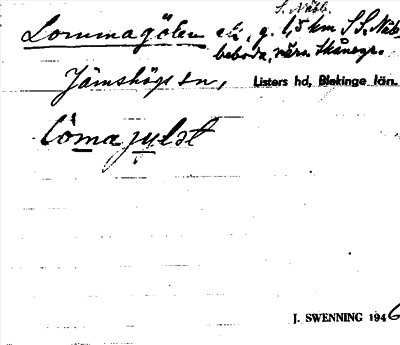 S. Näbb.
Lommagölen
g. 1,5 km S S. Näb-
beboda, nära Skånegr.
Jämshögs sn, Listers hd, Blekinge län.
J. SWENNING 1946